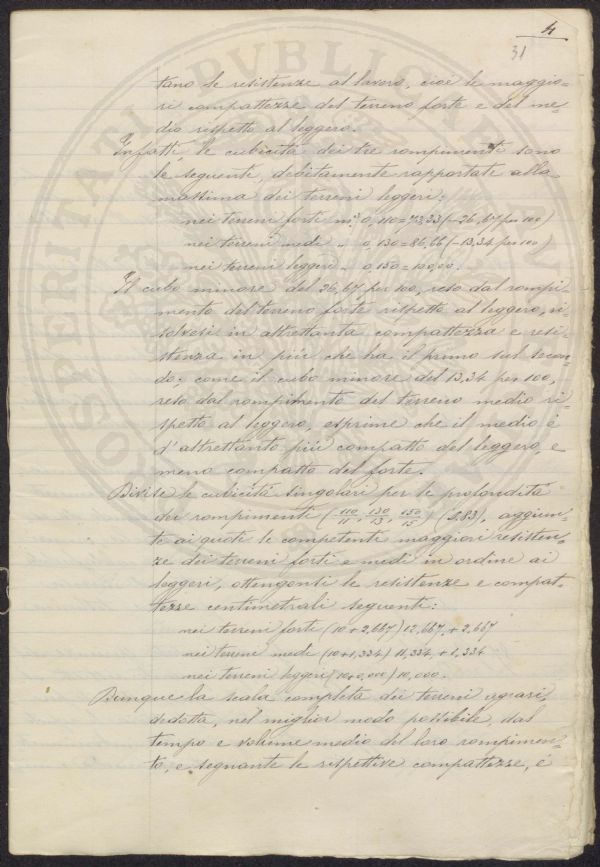 4
31
tano le resistenze al lavoro, cioè le maggio-
ri compattezze del terreno forte e del me-
dio rispetto al leggero.
Infatti le cubicità dei tre rompimenti sono
le seguenti, debitamente rapportate alla
massima dei terreni leggeri:
nei terreni forti m.c. 0,110=73,33 (-26,67 per 100)
nei terreni medi " 0,130=86,66 (-13,34 per 100)
nei terreni leggeri " 0,150=100,00.
Il cubo minore del 26,67 per 100, reso dal rompi-
mento del terreno forte rispetto al leggero, ri-
solvesi in altrettanta compattezza e resi-
stenza in più che ha il primo sul secon-
do: come il cubo minore del 13,34 per 100,
reso dal rompimento del terreno medio ri-
spetto al leggero, esprime che il medio è
d'altrettanto più compatto del leggero, e
meno compatto del forte.
Divise le cubicità singolari per le profondità
dei rompimenti (110/11, 130/13, 150/15) (§.83), aggiun-
te ai quoti le competenti maggiori resisten-
ze dei terreni forti e medi in ordine ai
leggeri, ottengonsi le resistenze e compat-
tezze centimetrali seguenti:
nei terreni forti (10+2,667) 12,667, + 2,667
nei terreni medi (10+1,334) 11,334, + 1,334
nei terreni leggeri (10+0,000) 10,000.
Dunque la scala completa dei terreni agrari,
dedotta, nel miglior modo possibile, dal
tempo e volume medio del loro rompimen-
to, e segnante le rispettive compattezze, è